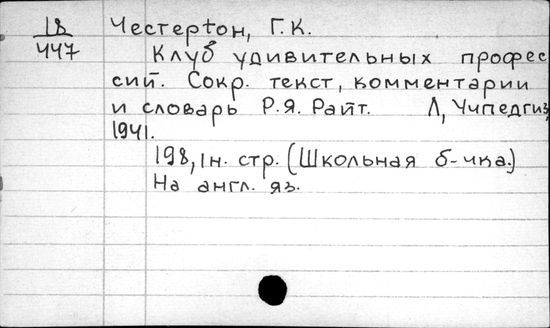 18 Честертон, Г.К.
447 Клуб удивительных професс
сий. Сокр. текст, комментарии
и словарь Р.Я. Райт. Л, Учпедгиз,
1941.
198, 1н. стр. (Школьная б-чка.)
На англ. яз.